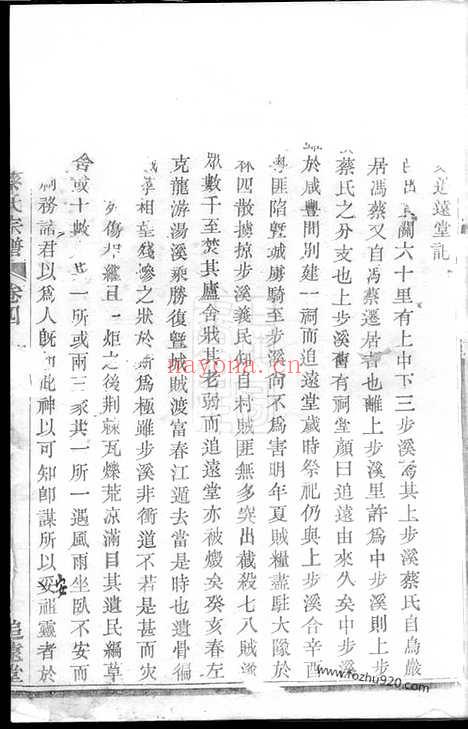 追遠堂記
自出 關六十里有上中下三步溪焉其上步溪蔡氏自烏巖
居馮蔡又自馮蔡遷居者也離上步溪里許爲中步溪則上步
蔡氏之分支也上步溪舊有祠堂顏曰追遠由來久矣中步溪
於咸豐間別建一祠而追遠堂歲時祭祀仍與上步溪合辛酉
粵匪陷曁城虜騎至步溪尚不爲害明年夏賊糧盡駐大隊於
林四散擄掠步溪義民伺自村賊匪無多突出截殺七八賊
眾數千至焚其廬舍戕其老弱而追遠堂亦被燬矣癸亥春左
克龍游湯溪乘勝復曁城賊渡富春江遁去當是時也遺骨徧
相 殘慘之狀於斯爲極雖步溪非衝道不若是甚而灾
傷 繼且一炬之後荆蔴瓦爍荒凉滿目其遺民編草
舍或十數 共一所或兩三家共一所一遇風雨坐卧不安而
祠務諸君以爲人旣如此神以可知卽謀所以妥祖靈者於
安
蔡氏宗譜
卷四
追遠堂
nayona.cn
www.fozhu920.com